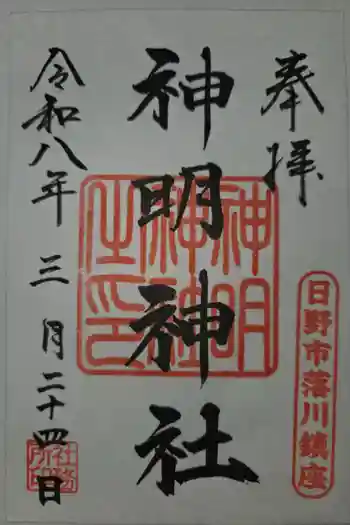 奉拝
日野市落川鎮座
神明神社
神明神社之印
令和八年三月二十四日
社務所印